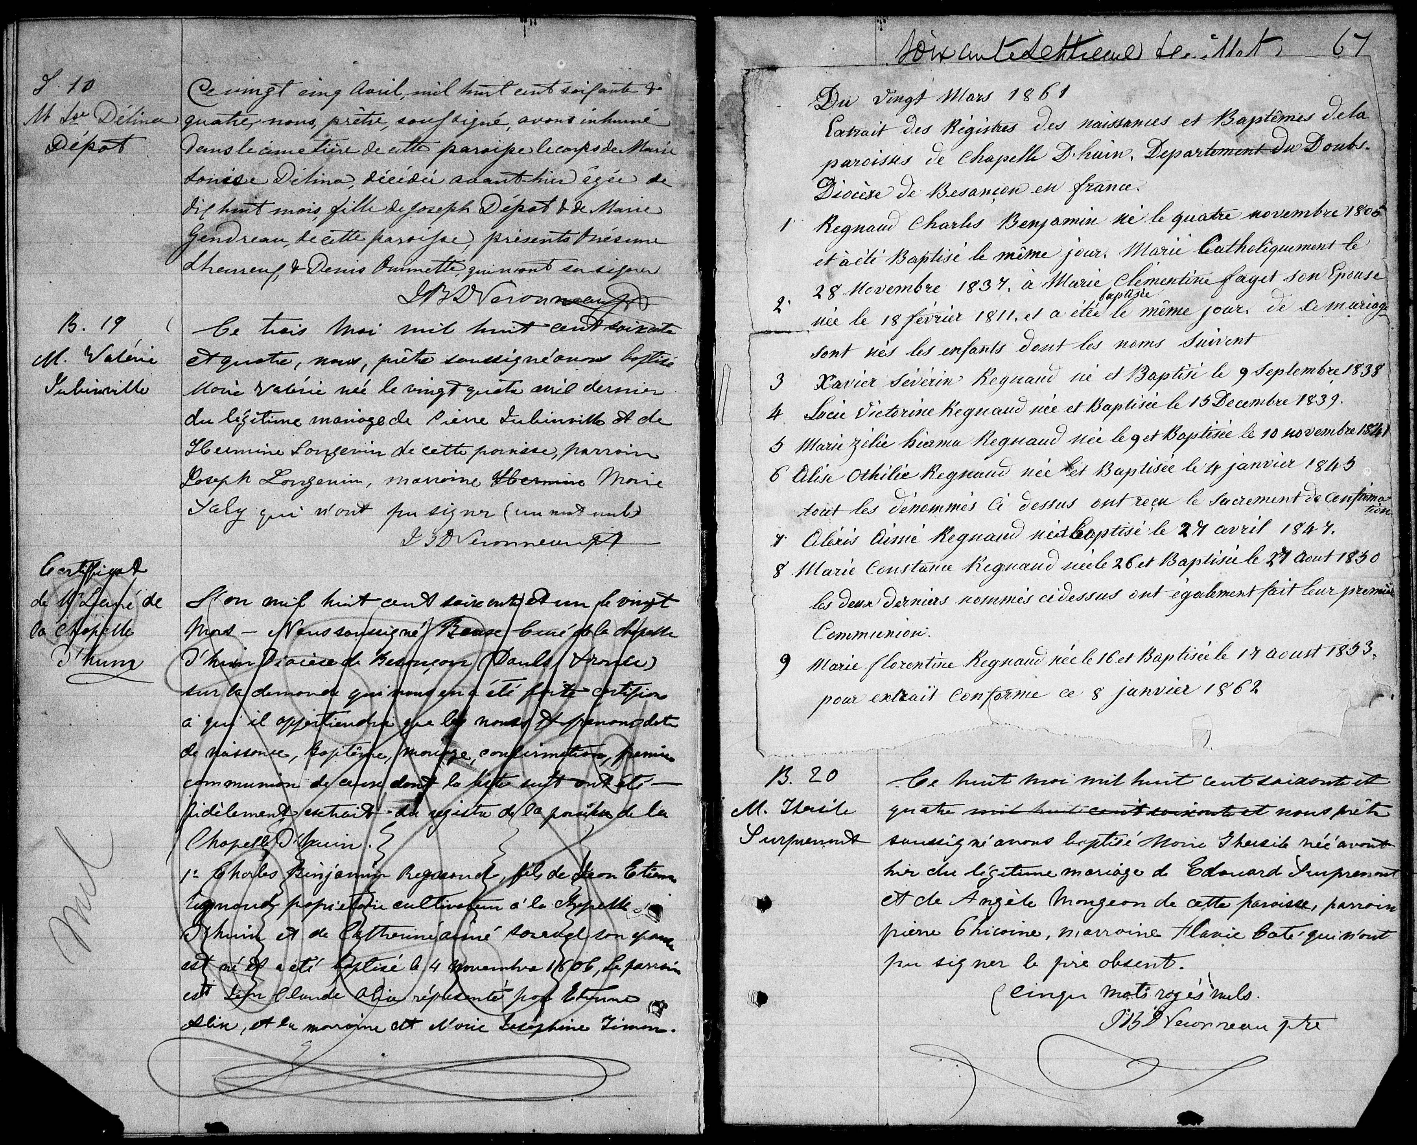 S. 10
M Lse Délina
Dépot
Ce vingt cinq Avril, mil huit cent soixante &
quatre, nous, prêtre, soussigné, avons inhumé
dans le cimetière de cette paroisse le corps de Marie
Louise Délina, décédée avant-hier âgée de
dix huit mois fille de Joseph Dépot & de Marie
Gendreau, de cette paroisse, présents Onésime
Lheureux, & Denis Ouimette qui n'ont su signer
JBD Veronneau ptre
B. 19
M. Valérie
Jubinville
Ce trois Mai mil huit cent soixante
et quatre, nous, prêtre soussigné avons baptisé
Marie Valérie née le vingt quatre avril dernier
du légitime mariage de Pierre Jubinville et de
Hermine Longevin de cette paroisse, parrain
Joseph Longevin, marraine Hermine Marie
Valy qui n'ont pu signer (un mot nul)
J B D Veronneau ptre
Certificat
de Mr Le curé de
la Chapelle
D'huin
L'on mil huit cent soixante et un le vingt
Mars — Nous soussigné Besse Curé de la chapelle
D'huin Diocèse de Besançon (Doubs France)
sur la demande qui nous en a été faite certifions
à qui il appartiendra que les noms & prenoms date
de naissance, Baptême, mariage, confirmation, première
communion de ceux dont la liste suit ont été —
fidèlement extraits du registre de la paroisse de la
Chapelle D'huin.
1º Charles Binjamin Regnaud, fils de Jean Etienne
Regnaud propriétaire cultivateur à la chapelle
D'huin et de Catherine aimé son épouse
est né et a été baptisé le 4 Novembre 1806, Le parrain
est Jean Claude Alix représenté par Etienne
Alix, et la marraine est Marie Joséphine Simon.
nul
Soixante Septième feuillet 67
Du vingt Mars 1861
Extrait des Régistres des naissances et Baptêmes de la
paroisses de Chapelle D'huin. Departement du Doubs.
Diocèse de Besançon en france.
1 Regnaud Charles Benjamin né le quatre novembre 1806
et à été Baptisé le même jour. Marié Catholiquement le
28 Novembre 1837. à Marie Clémentine faget son Epouse
2 née le 18 février 1811. et a étée baptisée le même jour. de ce mariage
sont nés les enfants dont les noms suivent
3 Xavier Sévérin Regnaud né et Baptisé le 9 septembre 1838
4 Lucie Victorine Regnaud née et Baptisée le 15 Decembre 1839.
5 Marie Zélie hiarma Regnaud née le 9 et Baptisée le 10 novembre 1841
6 Elise Othilie Regnaud née et Baptisée le 4 janvier 1845
tout les dénommés Ci dessus ont reçu le sacrement de Confirmation
7 Alexis Aimé Regnaud né et baptisé le 27 avril 1847.
8 Marie Constance Regnaud née le 26 et Baptisée le 27 Aout 1850
les deux derniers nommés cidessus ont également fait leur première
Communion.
9 Marie florentine Regnaud née le 16 et Baptisée le 17 aoust 1853.
pour extrait Conforme ce 8 janvier 1862
B. 20
M. Thersile
Surprenant
Ce huit Mai mil huit cent soixante et
quatre mil huit cent soixante et nous prêtre
soussigné avons baptisé Marie Thersile née avant
hier du légitime mariage de Edouard Surprenant
et de Angèle Mongeon de cette paroisse, parrain
pierre Chicoine, marraine Flavie Coté qui n'ont
pu signer le père absent.
(Cinq mots rayés nuls.
JBD Veronneau ptre